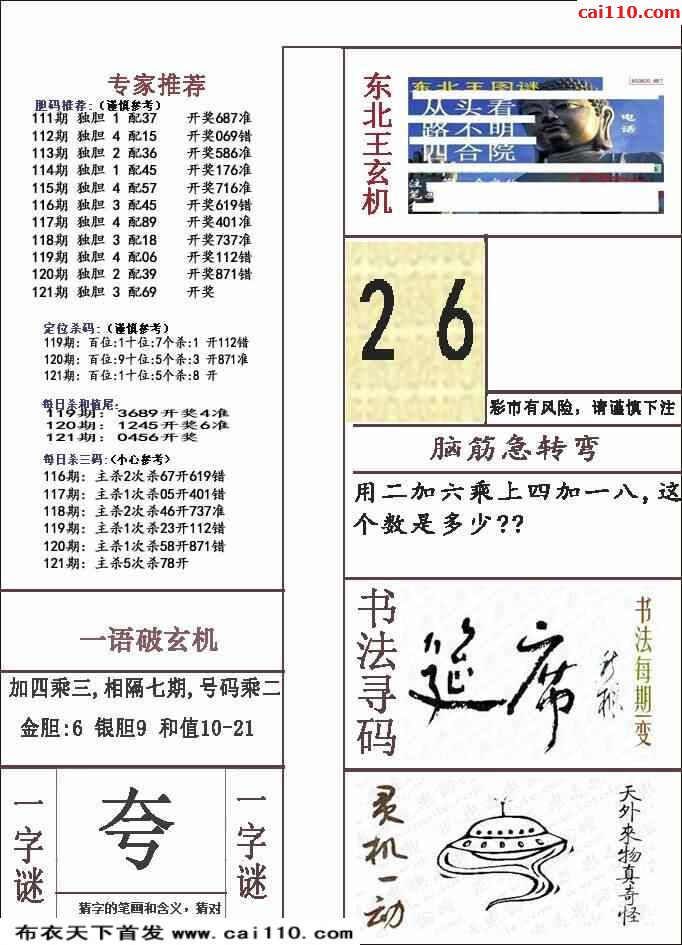 cai110.com
专家推荐
胆码推荐:(谨慎参考)
111期 独胆 1 配37 开奖687准
112期 独胆 4 配15 开奖069错
113期 独胆 2 配36 开奖586准
114期 独胆 1 配45 开奖176准
115期 独胆 4 配57 开奖716准
116期 独胆 3 配45 开奖619错
117期 独胆 4 配89 开奖401准
118期 独胆 3 配18 开奖737准
119期 独胆 4 配06 开奖112错
120期 独胆 2 配39 开奖871错
121期 独胆 3 配69 开奖
定位杀码:(谨慎参考)
119期: 百位:1十位:7个杀:1 开112错
120期: 百位:9十位:5个杀:3 开871准
121期: 百位:1十位:5个杀:8 开
每日杀和值尾:
119期: 3689开奖4准
120期: 1245开奖6准
121期: 0456开奖
每日杀三码:(小心参考)
116期: 主杀2次杀67开619错
117期: 主杀1次杀05开401错
118期: 主杀2次杀46开737准
119期: 主杀1次杀23开112错
120期: 主杀1次杀58开871错
121期: 主杀5次杀78开
一语破玄机
加四乘三,相隔七期,号码乘二
金胆:6 银胆9 和值10-21
一字谜
夸
一字谜
猜字的笔画和含义,猜对
布衣天下首发 www.cai110.com
东北王玄机
东北王图谜
从头看
路不明
四合院
电话
26
彩市有风险, 请谨慎下注
脑筋急转弯
用二加六乘上四加一八,这
个数是多少??
书法寻码
筵席
书法每期一变
灵机一动
天外来物真奇怪